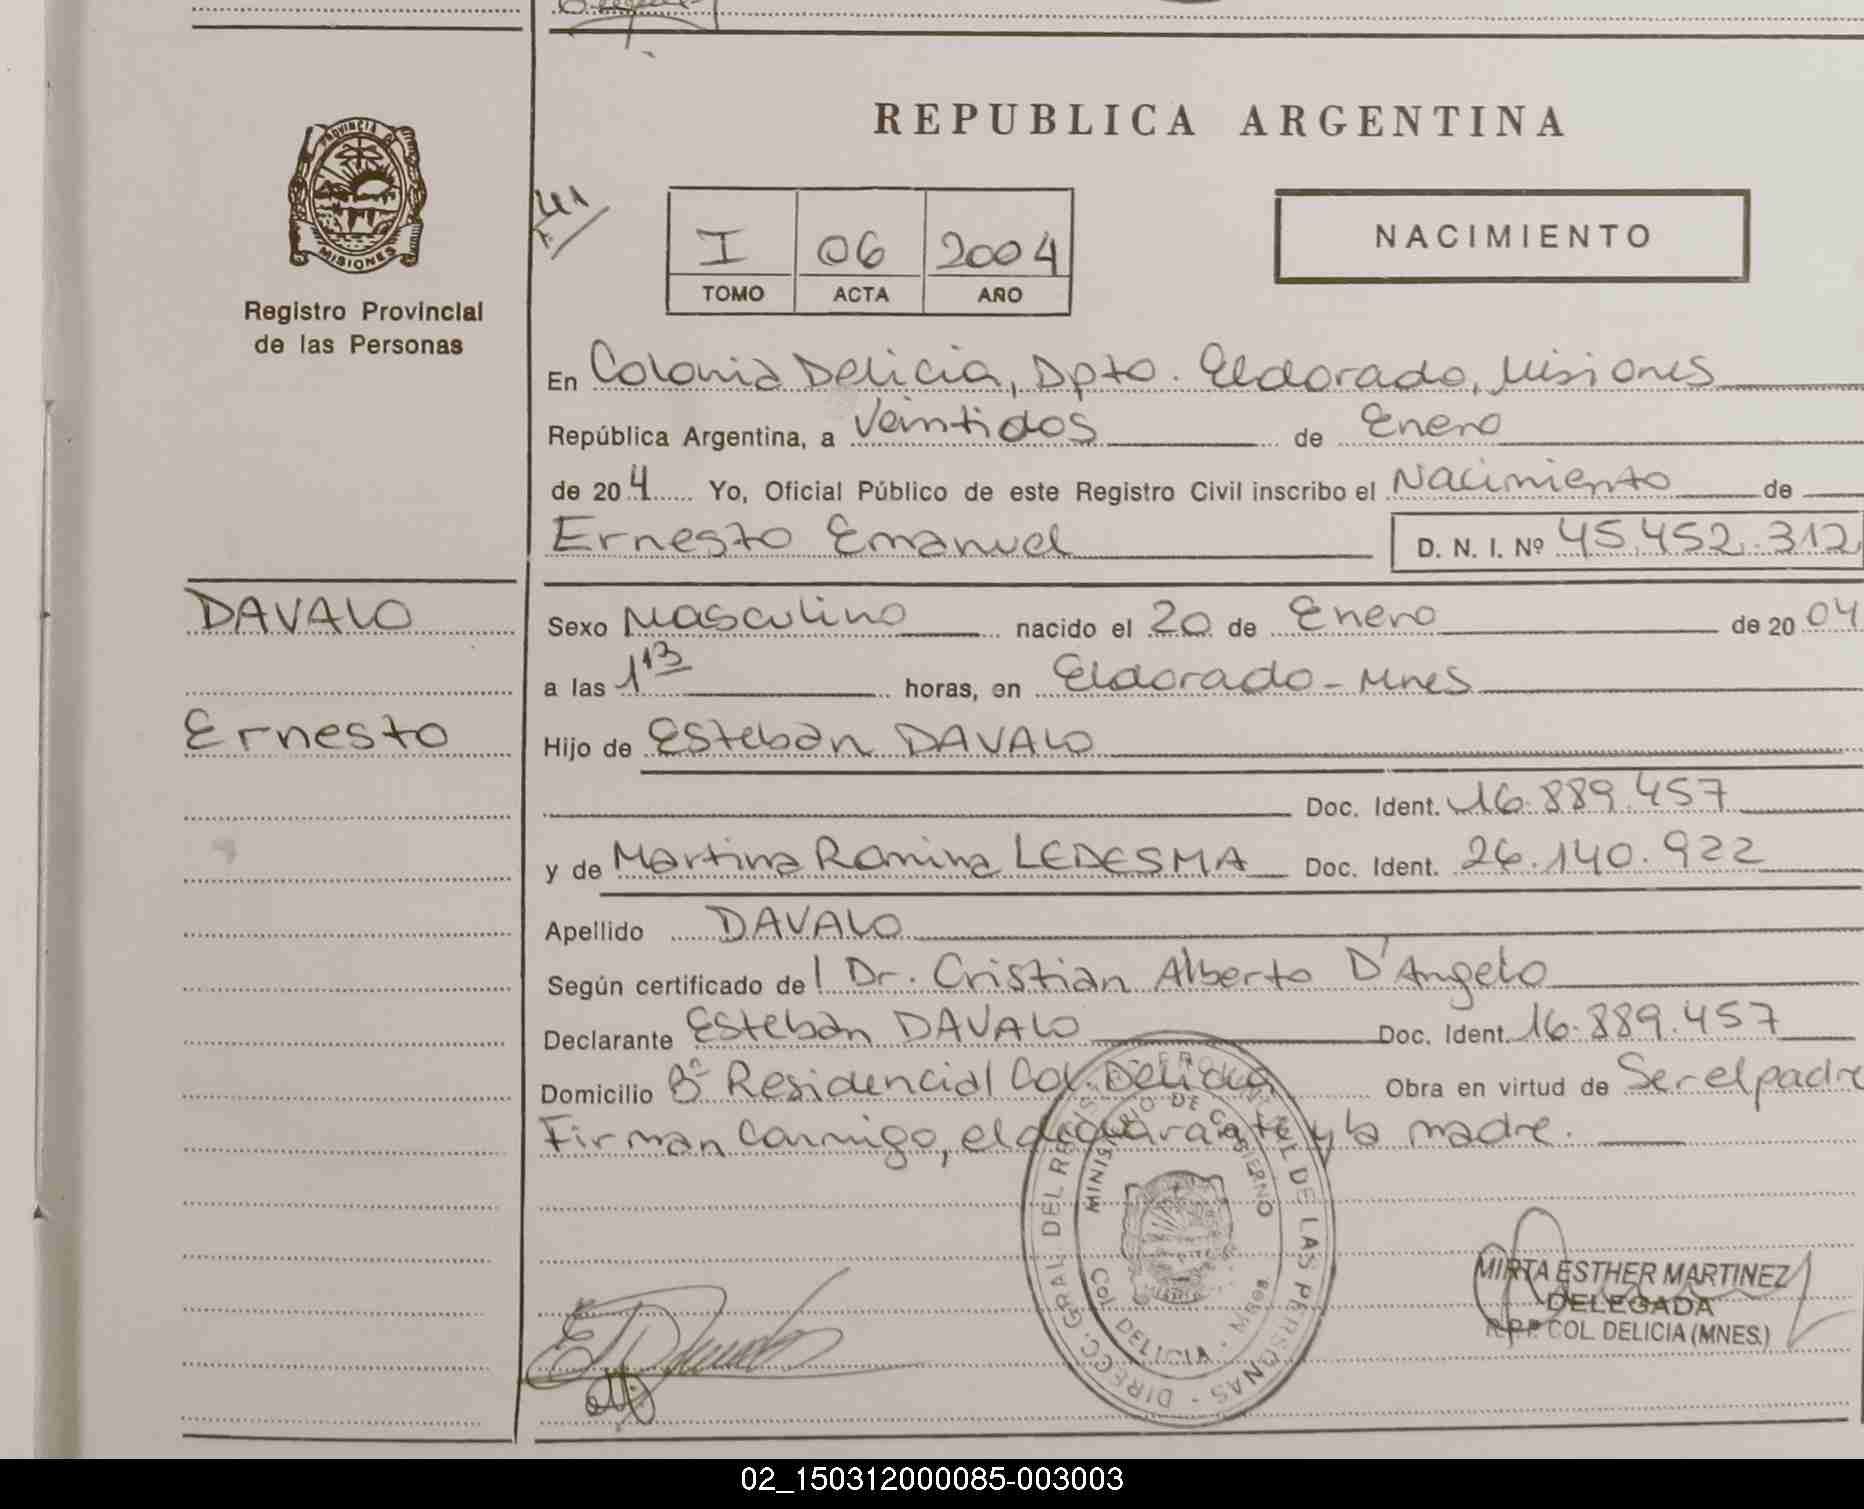 REPUBLICA ARGENTINA
PROVINCIA DE
MISIONES
Registro Provincial
de las Personas
I 06 2004
TOMO ACTA AÑO
NACIMIENTO
En Colonia Delicia, Dpto. Eldorado, Misiones
República Argentina, a Veintidos de Enero
de 20 4 Yo, Oficial Público de este Registro Civil inscribo el Nacimiento de
Ernesto Emanuel D. N. I. Nº 45.452.312
DAVALO
Ernesto
Sexo Masculino nacido el 20 de Enero de 20 04
a las 1 13 horas, en Eldorado - Mnes
Hijo de Esteban DAVALO
Doc. Ident. 16.889.457
y de Martina Romina LEDESMA Doc. Ident. 26.140.922
Apellido DAVALO
Según certificado de l Dr. Cristian Alberto D'Angelo
Declarante Esteban DAVALO Doc. Ident. 16.889.457
Domicilio Bº Residencial Col. Delicia Obra en virtud de Ser el padre
Firman conmigo, el declarante y la madre.
DIRECC. GRAL. DEL REGISTRO PROVINCIAL DE LAS PERSONAS
MINISTERIO DE GOBIERNO
COL. DELICIA - Mnes
MIRTA ESTHER MARTINEZ
DELEGADA
R.P.P. COL. DELICIA (MNES.)
02_150312000085-003003